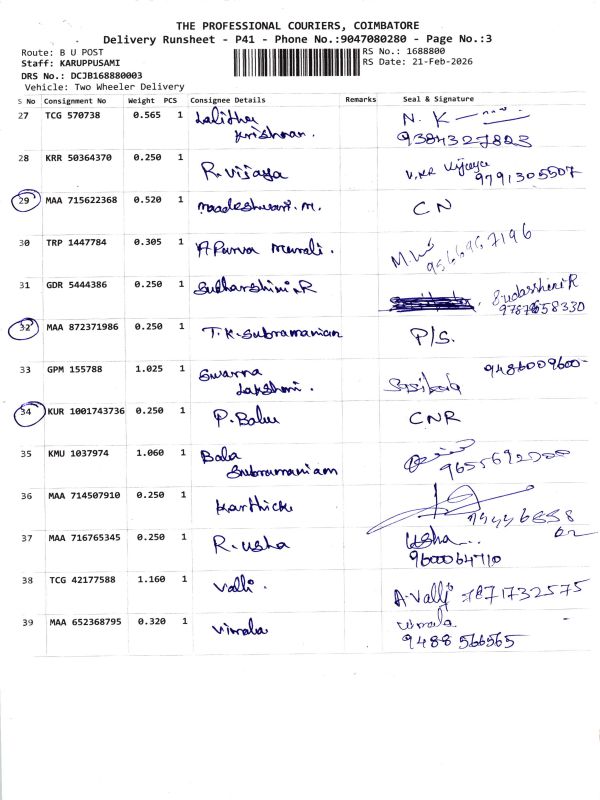 THE PROFESSIONAL COURIERS, COIMBATORE
Delivery Runsheet - P41 - Phone No.:9047080280 - Page No.:3
Route: B U POST
RS No.: 1688800
Staff: KARUPPUSAMI
RS Date: 21-Feb-2026
DRS No.: DCJB168880003
Vehicle: Two Wheeler Delivery
S No Consignment No Weight PCS Consignee Details Remarks Seal & Signature
27 TCG 570738 0.565 1 Lalitha N. K
Krishnan. 9384327823
28 KRR 50364370 0.250 1 R. Vijaya Vijaya
9791305507
29 MAA 715622368 0.520 1 Maadeshwari. M. CN
30 TRP 1447784 0.305 1 Apurva Murali.
9566967196
31 GDR 5444386 0.250 1 Sudharshini.R
32 MAA 872371986 0.250 1 T.K. Subramanian P/S.
33 GPM 155788 1.025 1 Swarna 9486009600
Lakshmi.
34 KUR 1001743736 0.250 1 P. Babu CNR
35 KMU 1037974 1.060 1 Bala
Subramaniam
36 MAA 714507910 0.250 1 Karthick
37 MAA 716765345 0.250 1 R. Usha Usha
9600064710
38 TCG 42177588 1.160 1 Valli. A. Valli 7871732575
39 MAA 652368795 0.320 1 Vimala Vimala
9488566565